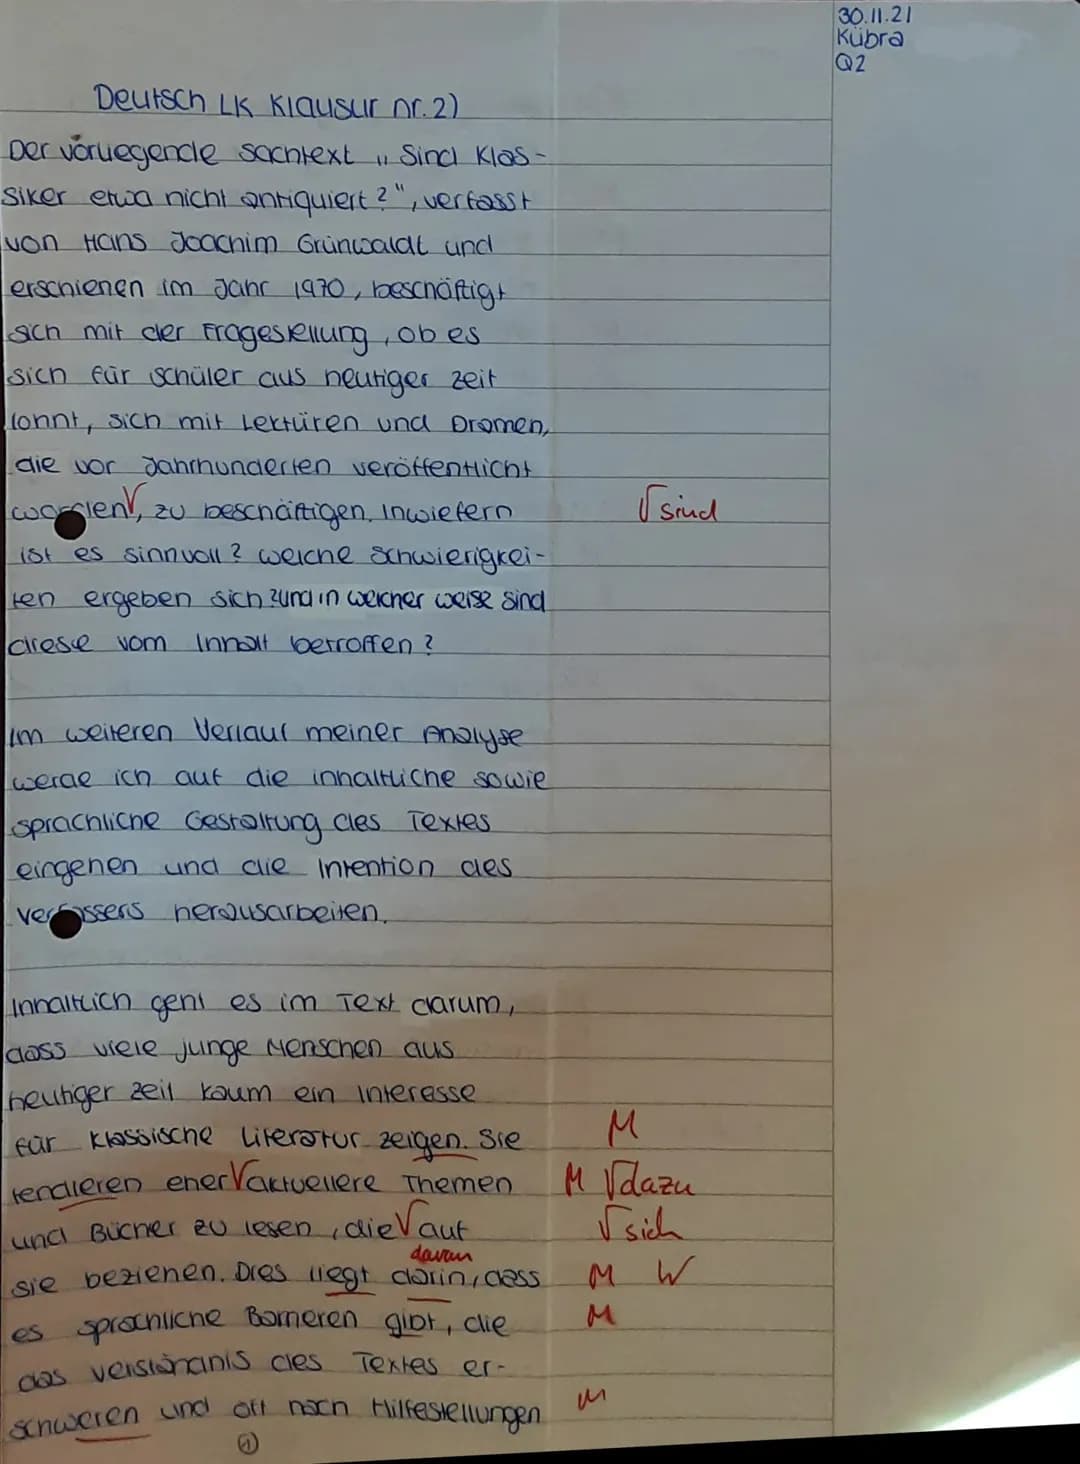 30.11.21
Kübra
Q2
Deutsch LK Klausur nr. 2)
Der vorliegende Sachtext „Sind Klas-
siker etwa nicht antiquiert?", verfasst
von Hans Joachim Grünwaldt und
erschienen im Jahr 1970, beschäftigt
sich mit der Fragestellung, ob es
sich für Schüler aus heutiger Zeit
lohnt, sich mit Lektüren und Dramen,
die vor Jahrhunderten veröffentlicht
worden√, zu beschäftigen. Inwiefern √ sind
ist es sinnvoll? Welche Schwierigkei-
ten ergeben sich? und in welcher weise sind
diese vom Inhalt betroffen?
Im weiteren Verlauf meiner Analyse
werde ich auf die inhaltliche sowie
sprachliche Gestaltung des Textes
eingehen und die Intention des
Verfassers herausarbeiten.
Inhaltlich geht es im Text darum,
dass viele junge Menschen aus
heutiger Zeit kaum ein Interesse
für klassische Literatur zeigen. Sie M
tendieren eher√ aktuellere Themen M √dazu
und Bücher zu lesen, die√ auf √ sich
davan
sie beziehen. Dies liegt darin, dass M W
es sprachliche Barrieren gibt, die M
das Verständnis des Textes er-
schweren und oft nach Hilfestellungen M
1